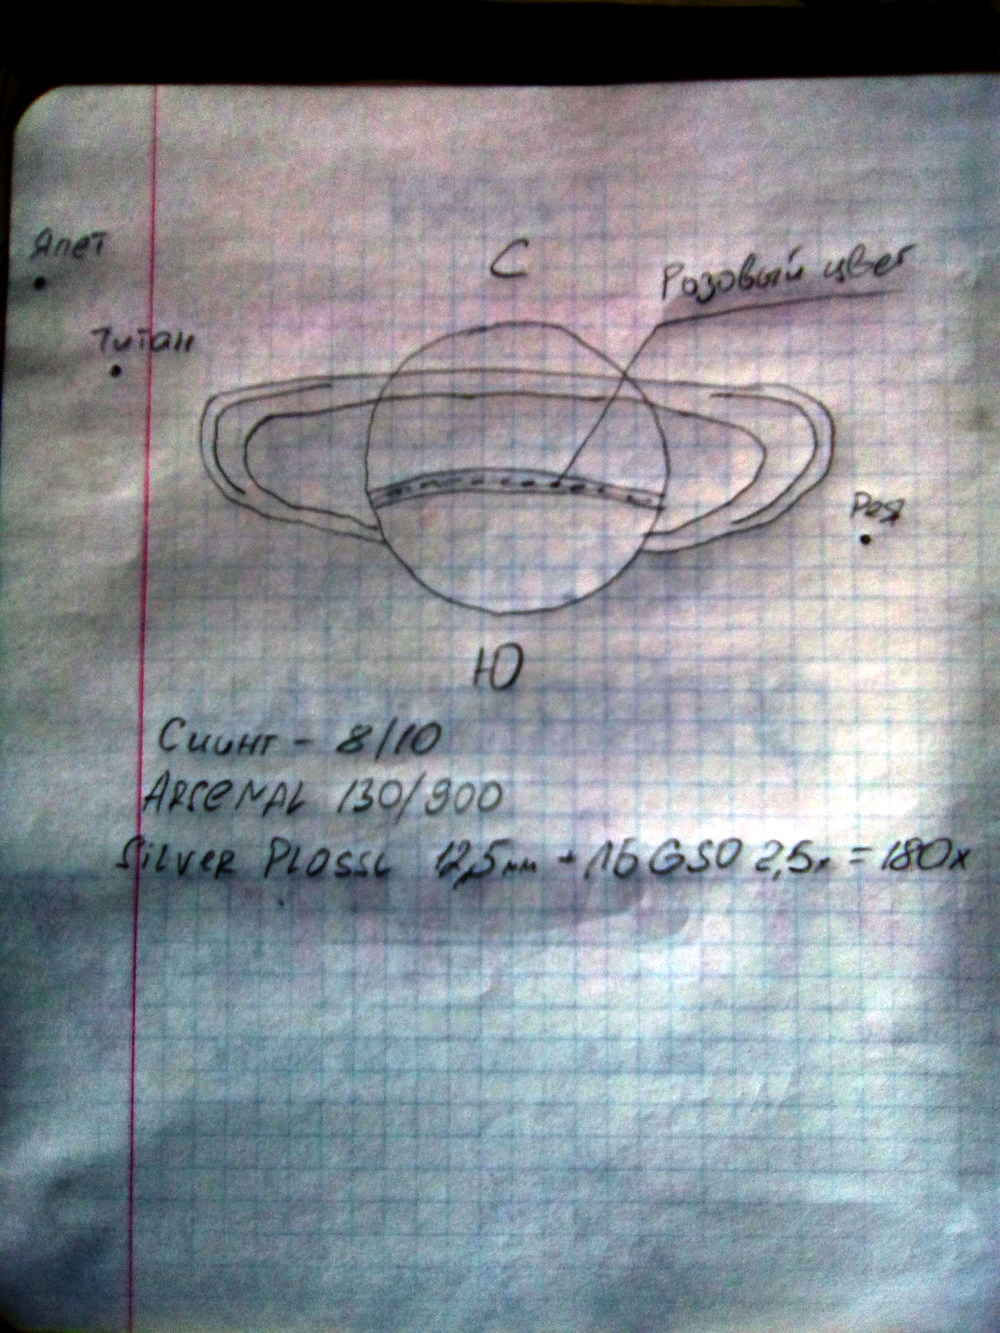 Япет
С
Розовый цвет
Титан
Рея
Ю
Сиинг - 8/10
ARSENAL 130/900
Silver PLOSSL 12,5мм + ЛБ GSO 2,5х = 180х